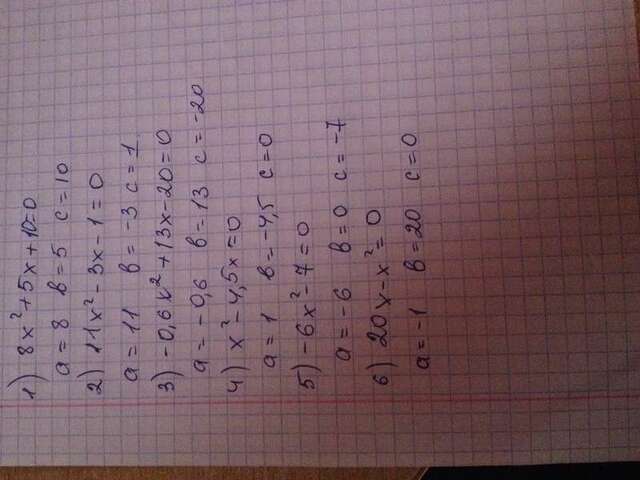 1) 8x²+5x+10=0
a=8 b=5 c=10
2) 11x²-3x-1=0
a=11 b=-3 c=1
3) -0,6x²+13x-20=0
a=-0,6 b=13 c=-20
4) x²-4,5x=0
a=1 b=-4,5 c=0
5) -6x²-7=0
a=-6 b=0 c=-7
6) 20x-x²=0
a=-1 b=20 c=0